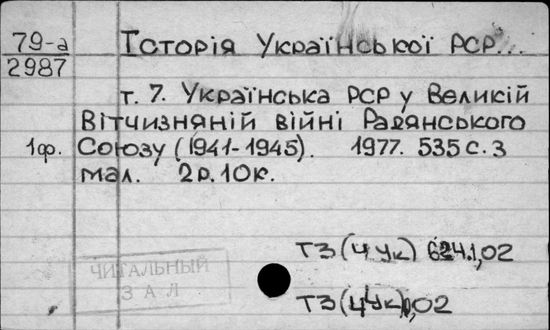 79-а
2987
Історія Української РСР...
т. 7. Українська РСР у Великій
Вітчизняній війні Радянського
1ф. Союзу (1941-1945). 1977. 535 с. з
мал. 2р. 10к.
Т3(4Ук) 624.1,02
ЧИТАЛЬНЫЙ
ЗАЛ
Т3(4Ук),02